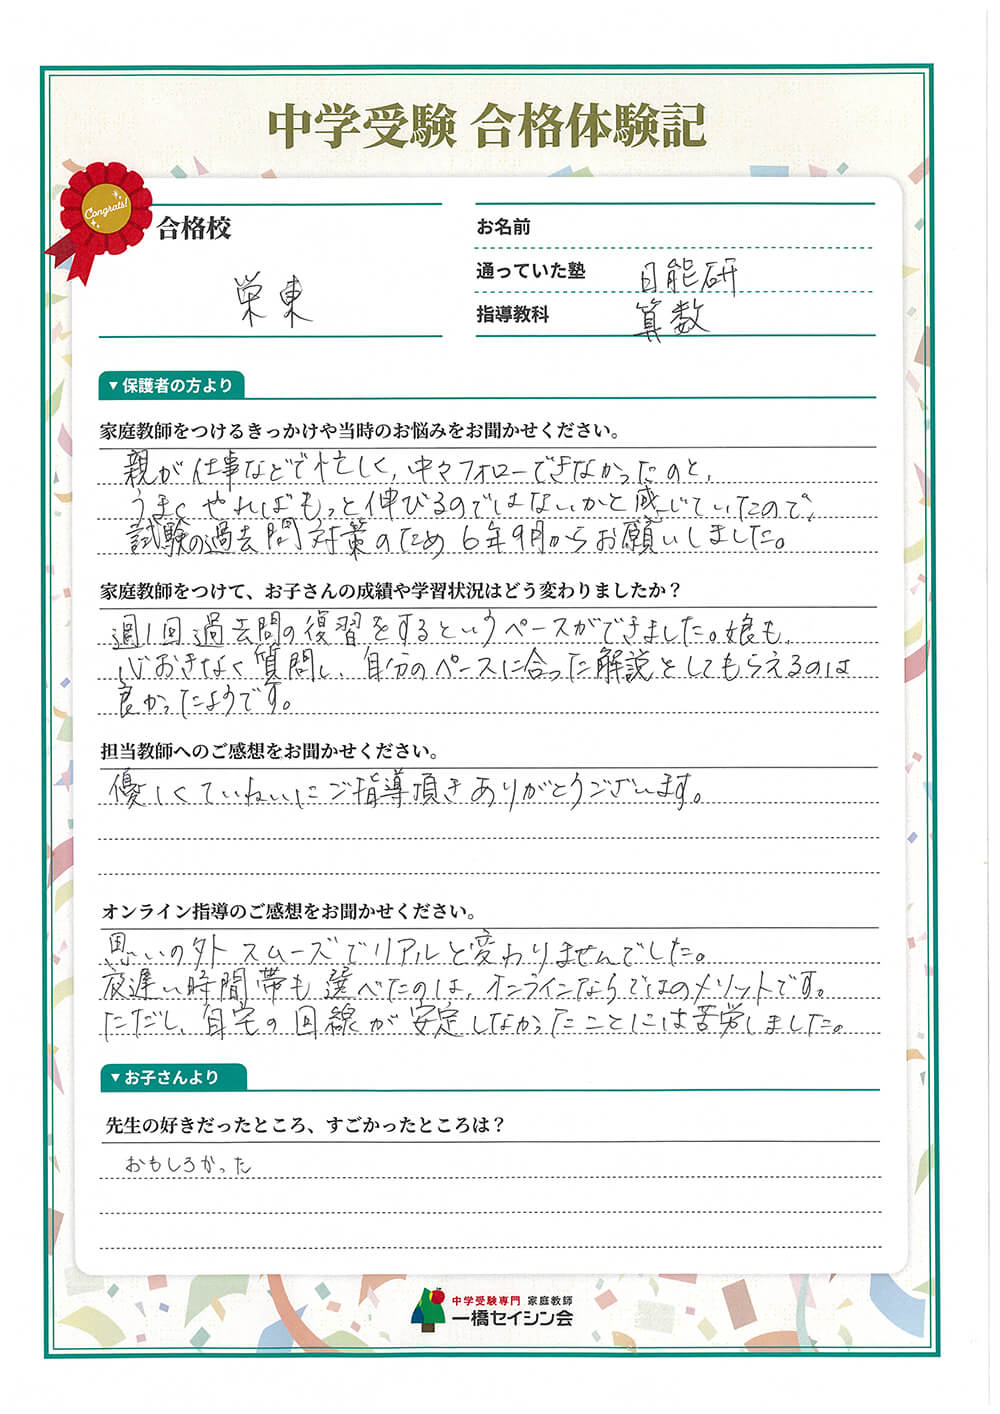 中学受験 合格体験記
Congrats!
合格校
栄東
お名前
通っていた塾 日能研
指導教科 算数
▼保護者の方より
家庭教師をつけるきっかけや当時のお悩みをお聞かせください。
親が仕事などで忙しく、中々フォローできなかったのと、
うまくやればもっと伸びるのではないかと感じていたので、
試験の過去問対策のため6年9月からお願いしました。
家庭教師をつけて、お子さんの成績や学習状況はどう変わりましたか？
週1回過去問の復習をするというペースができました。娘も、
心おきなく質問し、自分のペースに合った解説としてもらえるのは
良かったようです。
担当教師へのご感想をお聞かせください。
優しくていねいにご指導頂きありがとうございます。
オンライン指導のご感想をお聞かせください。
思いの外スムーズでリアルと変わりませんでした。
夜遅い時間帯も選べたのは、オンラインならではのメリットです。
ただし、自宅の回線が安定しなかったことには苦労しました。
▼お子さんより
先生の好きだったところ、すごかったところは？
おもしろかった
中学受験専門 家庭教師
一橋セイシン会